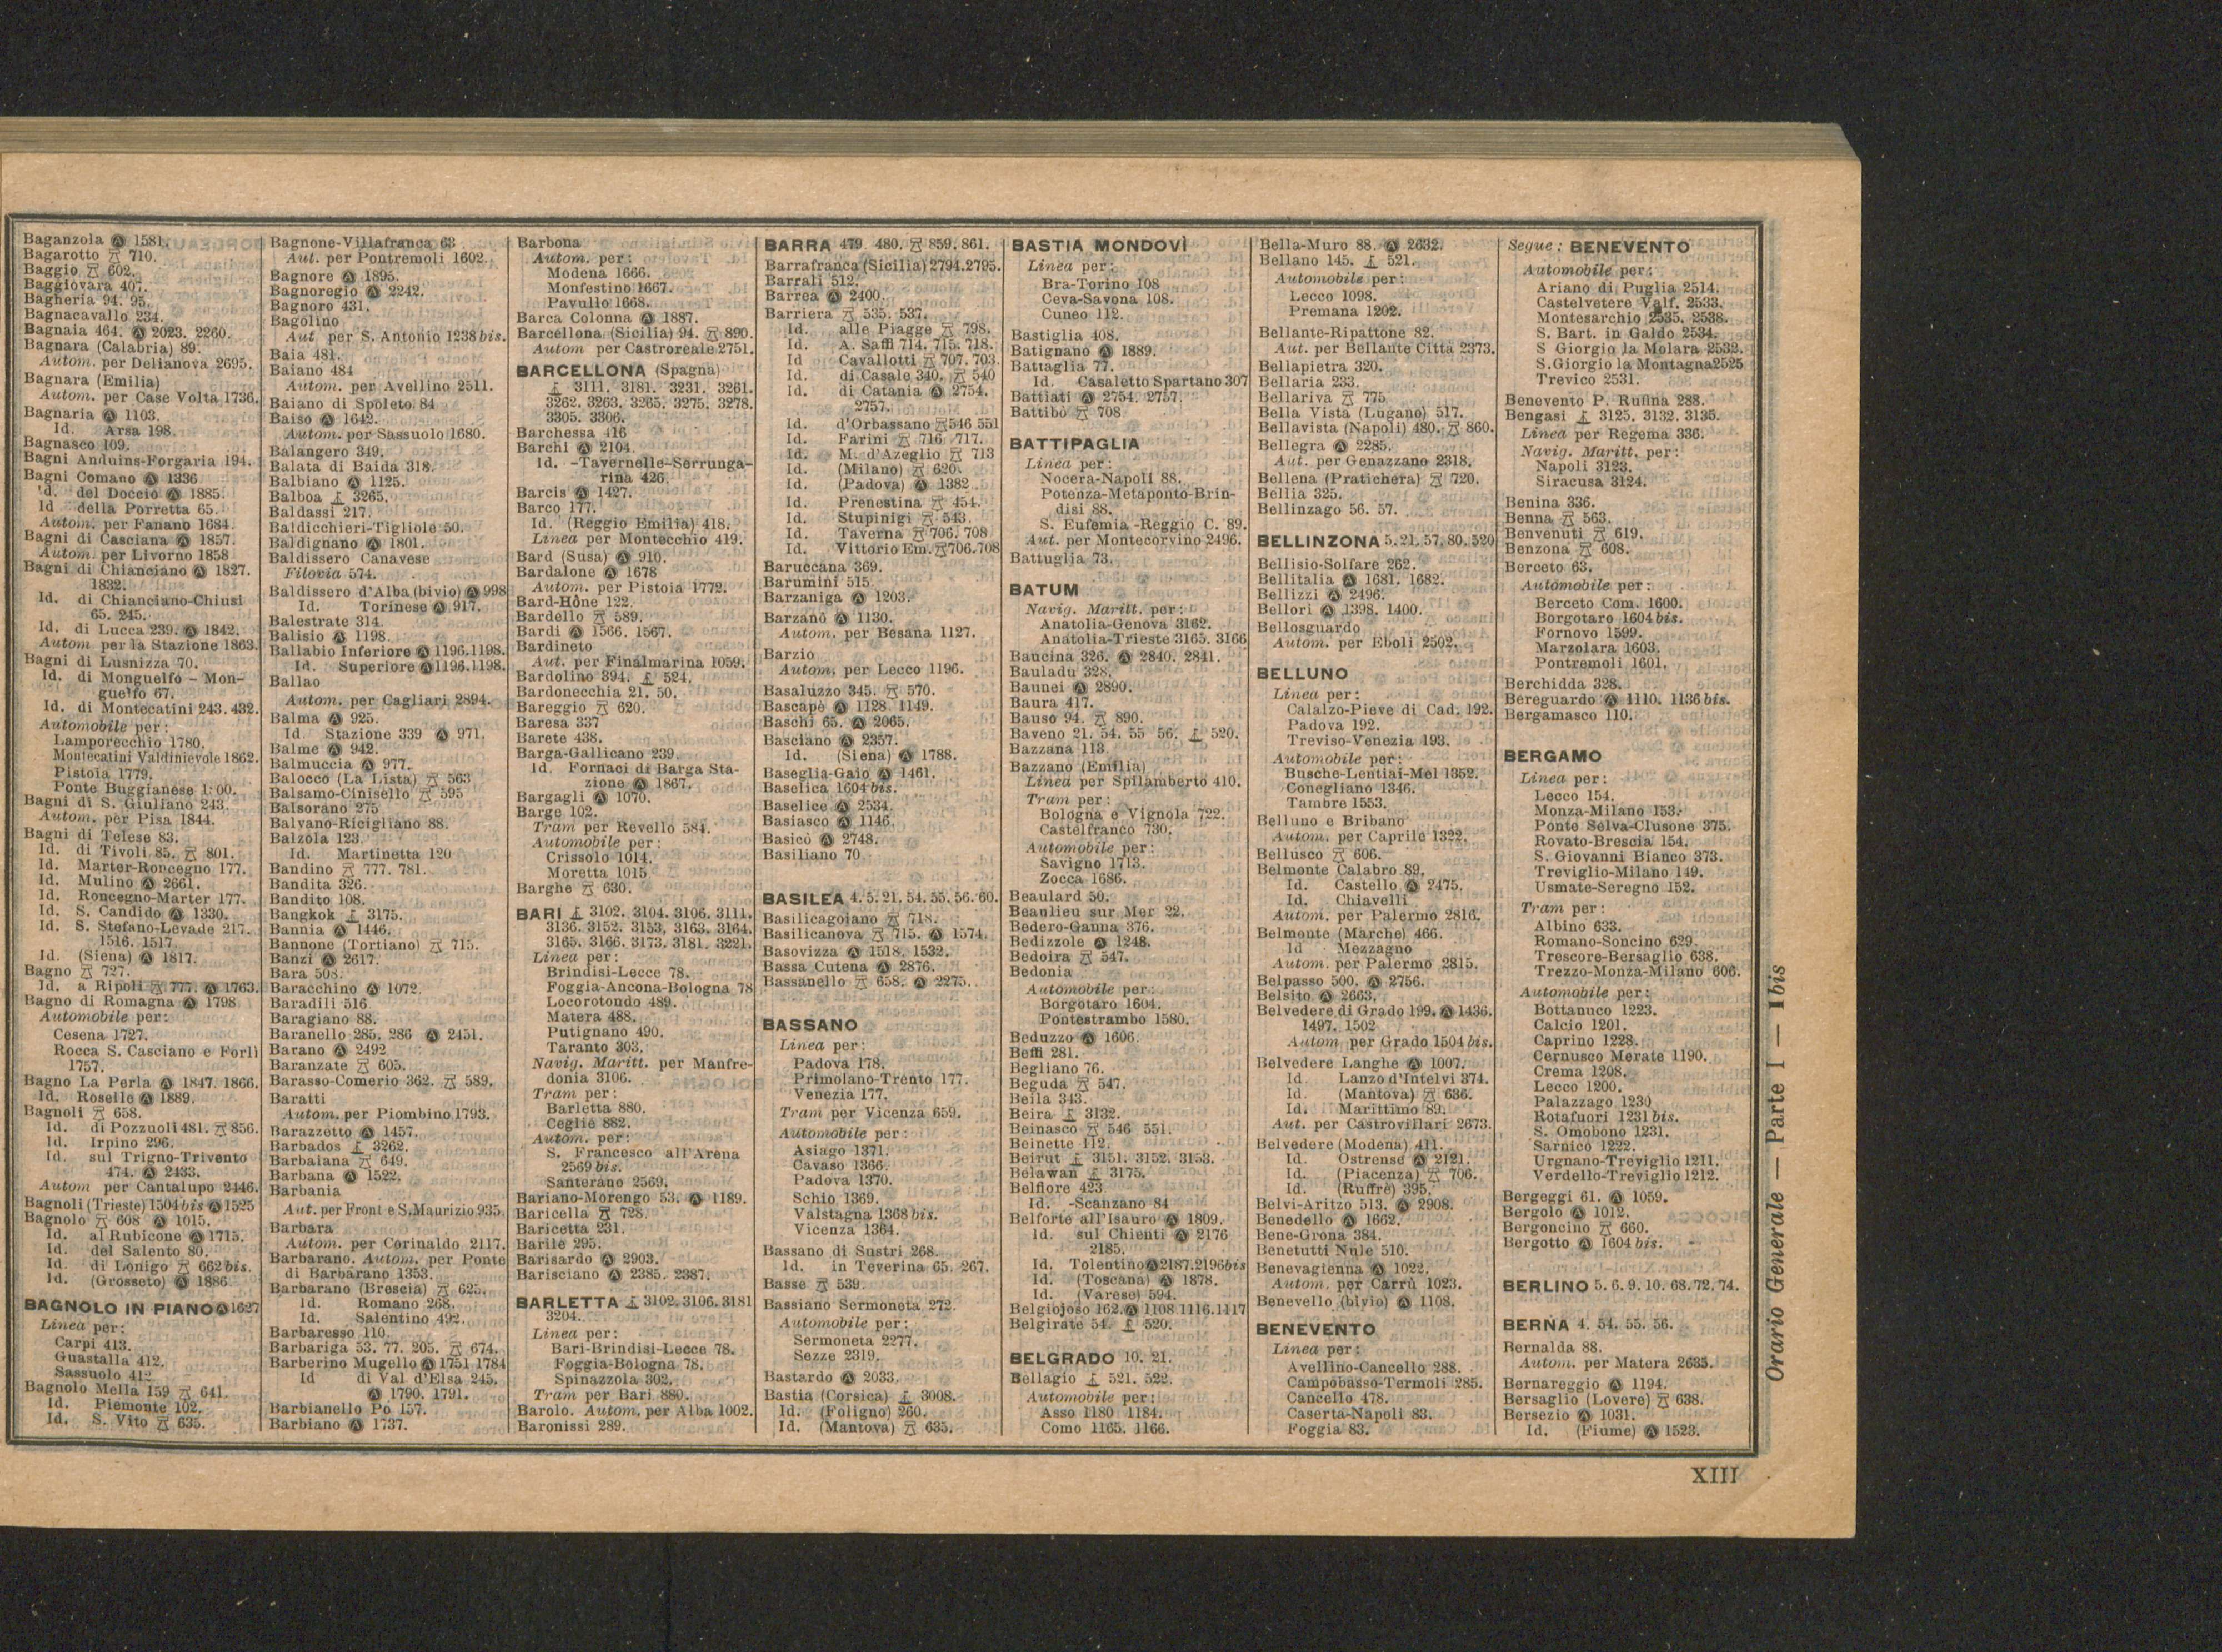 Baganzola Ⓐ 1581.
Bagarotto 710.
Baggio 602.
Baggiovara 407.
Bagheria 94. 95.
Bagnacavallo 234.
Bagnaia 464. Ⓐ 2023. 2260.
Bagnara (Calabria) 89.
Autom. per Delianova 2695.
Bagnara (Emilia)
Autom. per Case Volta 1736.
Bagnaria Ⓐ 1103.
Id. Arsa 198.
Bagnasco 109.
Bagni Anduins-Forgaria 194.
Bagni Comano Ⓐ 1336
Id. del Doccio Ⓐ 1885.
Id della Porretta 65.
Autom. per Fanano 1684.
Bagni di Casciana Ⓐ 1857.
Autom. per Livorno 1858
Bagni di Chianciano Ⓐ 1827.
1832.
Id. di Chianciano-Chiusi
65. 245.
Id. di Lucca 239. Ⓐ 1842.
Autom per la Stazione 1863.
Bagni di Lusnizza 70.
Id. di Monguelfo - Mon-
guelfo 67.
Id. di Montecatini 243. 432.
Automobile per:
Lamporecchio 1780.
Montecatini Valdinievole 1862.
Pistoia 1779.
Ponte Buggianese
Bagni di S. Giuliano 243.
Autom. per Pisa 1844.
Bagni di Telese 83.
Id. di Tivoli 85. 801.
Id. Marter-Roncegno 177.
Id. Mulino Ⓐ 2661.
Id. Roncegno-Marter 177.
Id. S. Candido Ⓐ 1330.
Id. S. Stefano-Levade 217.
1516. 1517.
Id. (Siena) Ⓐ 1817.
Bagno 727.
Id. a Ripoli 777. Ⓐ 1763.
Bagno di Romagna Ⓐ 1798
Automobile per:
Cesena 1727.
Rocca S. Casciano e Forlì
1757.
Bagno La Perla Ⓐ 1847. 1866.
Id. Roselle Ⓐ 1889.
Bagnoli 658.
Id. di Pozzuoli 481. 856.
Id. Irpino 296.
Id. sul Trigno-Trivento
474. Ⓐ 2433.
Autom per Cantalupo 2446.
Bagnoli (Trieste) 1504 bis Ⓐ 1525
Bagnolo 608 Ⓐ 1015.
Id. al Rubicone Ⓐ 1715.
Id. del Salento 80.
Id. di Lonigo 662 bis.
Id. (Grosseto) Ⓐ 1886
BAGNOLO IN PIANO Ⓐ 1627
Linea per:
Carpi 413.
Guastalla 412.
Sassuolo 412
Bagnolo Mella 159 641.
Id. Piemonte 102.
Id. S. Vito 635.
Bagnone-Villafranca 63
Aut. per Pontremoli 1602.
Bagnore Ⓐ 1895.
Bagnoregio Ⓐ 2242.
Bagnoro 431.
Bagolino
Aut per S. Antonio 1238 bis.
Baia 481.
Baiano 484
Autom. per Avellino 2511.
Baiano di Spoleto 84
Baiso Ⓐ 1642.
Autom. per Sassuolo 1680.
Balangero 349.
Balata di Baida 318.
Balbiano Ⓐ 1125.
Balboa 3265.
Baldassi 217.
Baldicchieri-Tigliole 50.
Baldignano Ⓐ 1801.
Baldissero Canavese
Filovia 574.
Baldissero d'Alba (bivio) Ⓐ 998
Id. Torinese Ⓐ 917.
Balestrate 314
Balisio Ⓐ 1198.
Ballabio Inferiore Ⓐ 1196.1198.
Id. Superiore Ⓐ 1196.1198.
Ballao
Autom. per Cagliari 2894.
Balma Ⓐ 925.
Id. Stazione 339 Ⓐ 971.
Balme Ⓐ 942.
Balmuccia Ⓐ 977.
Balocco (La Lista) 563
Balsamo-Cinisello 595
Balsorano 275
Balvano-Ricigliano 88.
Balzola 123
Id. Martinetta 120
Bandino 777. 781.
Bandita 326.
Bandito 108.
Bangkok 3175.
Bannia Ⓐ 1446.
Bannone (Tortiano) 715.
Banzi Ⓐ 2617.
Bara 508.
Baracchino Ⓐ 1072.
Baradili 516
Baragiano 88.
Baranello 285. 286 Ⓐ 2451.
Barano Ⓐ 2492
Baranzate 605.
Barasso-Comerio 362. 589.
Baratti
Autom. per Piombino 1793.
Barazzetto Ⓐ 1457.
Barbados 3262.
Barbaiana 649.
Barbana Ⓐ 1522.
Barbania
Aut. per Front e S. Maurizio 935
Barbara
Autom. per Corinaldo 2117.
Barbarano. Autom. per Ponte
di Barbarano 1353.
Barbarano (Brescia) 625.
Id. Romano 268.
Id. Salentino 492.
Barbaresso 110.
Barbariga 53. 77. 205. 674.
Barberino Mugello Ⓐ 1751 1784
Id di Val d'Elsa 245.
Ⓐ 1790. 1791.
Barbianello Po 157.
Barbiano Ⓐ 1737.
Barbona
Autom. per:
Modena 1666.
Monfestino 1667.
Pavullo 1668.
Barca Colonna Ⓐ 1887.
Barcellona (Sicilia) 94. 890.
Autom per Castroreale 2751.
BARCELLONA (Spagna)
3111. 3181. 3231. 3261.
3262. 3263. 3265. 3275. 3278.
3305. 3306.
Barchessa 416
Barchi Ⓐ 2104.
Id. -Tavernelle-Serrunga-
rina 426.
Barcis Ⓐ 1427.
Barco 177.
Id. (Reggio Emilia) 418.
Linea per Montecchio 419.
Bard (Susa) Ⓐ 910.
Bardalone Ⓐ 1678
Autom. per Pistoia 1772.
Bard-Hône 122.
Bardello 589.
Bardi Ⓐ 1566. 1567.
Bardineto
Aut. per Finalmarina 1059.
Bardolino 394. 524.
Bardonecchia 21. 50.
Bareggio 620.
Baresa 337
Barete 438.
Barga-Gallicano 239.
Id. Fornaci di Barga Sta-
zione Ⓐ 1867.
Bargagli Ⓐ 1070.
Barge 102.
Tram per Revello 584.
Automobile per:
Crissolo 1014.
Moretta 1015
Barghe 630.
BARI 3102. 3104. 3106. 3111.
3136. 3152. 3153. 3163. 3164.
3165. 3166. 3173. 3181. 3221.
Linea per:
Brindisi-Lecce 78.
Foggia-Ancona-Bologna 78
Locorotondo 489.
Matera 488.
Putignano 490.
Taranto 303.
Navig. Maritt. per Manfre-
donia 3106.
Tram per:
Barletta 880.
Ceglie 882.
Autom. per:
S. Francesco all'Arena
2569 bis.
Santerano 2569.
Bariano-Morengo 53. Ⓐ 1189.
Baricella 728.
Baricetta 231.
Barile 295.
Barisardo Ⓐ 2903.
Barisciano Ⓐ 2385. 2387.
BARLETTA 3102. 3106. 3181
3204.
Linea per:
Bari-Brindisi-Lecce 78.
Foggia-Bologna 78.
Spinazzola 302.
Tram per Bari 880.
Barolo. Autom. per Alba 1002.
Baronissi 289.
BARRA 479. 480. 859. 861.
Barrafranca (Sicilia) 2794.2795.
Barrali 512.
Barrea Ⓐ 2400.
Barriera 535. 537.
Id. alle Piagge 798.
Id. A. Saffi 714. 715. 718.
Id Cavallotti 707. 703.
Id. di Casale 340. 540
Id. di Catania Ⓐ 2754.
2757.
Id. d'Orbassano 546 551
Id. Farini 716. 717.
Id. M. d'Azeglio 713
Id. (Milano) 620.
Id. (Padova) Ⓐ 1382
Id. Prenestina 454.
Id. Stupinigi 543.
Id. Taverna 706. 708
Id. Vittorio Em. 706.708
Baruccana 369.
Barumini 515
Barzaniga Ⓐ 1203.
Barzanò Ⓐ 1130.
Autom. per Besana 1127.
Barzio
Autom. per Lecco 1196.
Basaluzzo 345. 570.
Bascapè Ⓐ 1128. 1149.
Baschi 65. Ⓐ 2065.
Basciano Ⓐ 2357.
Id. (Siena) Ⓐ 1788.
Baseglia-Gaio Ⓐ 1461.
Baselica 1604 bis.
Baselice Ⓐ 2534.
Basiasco Ⓐ 1146.
Basicò Ⓐ 2748.
Basiliano 70
BASILEA 4. 5. 21. 54. 55. 56. 60.
Basilicagoiano 718.
Basilicanova 715. Ⓐ 1574.
Basovizza Ⓐ 1518. 1532.
Bassa Cutena Ⓐ 2876.
Bassanello 658. Ⓐ 2275.
BASSANO
Linea per:
Padova 178.
Primolano-Trento 177.
Venezia 177.
Tram per Vicenza 659.
Automobile per:
Asiago 1371.
Cavaso 1366.
Padova 1370.
Schio 1369.
Valstagna 1368 bis.
Vicenza 1364.
Bassano di Sustri 268.
Id. in Teverina 65. 267.
Basse 539.
Bassiano Sermoneta 272.
Automobile per:
Sermoneta 2277.
Sezze 2319.
Bastardo Ⓐ 2033.
Bastia (Corsica) 3008.
Id. (Foligno) 260.
Id. (Mantova) 635.
BASTIA MONDOVÌ
Linea per:
Bra-Torino 108
Ceva-Savona 108.
Cuneo 112.
Bastiglia 408.
Batignano Ⓐ 1889.
Battaglia 77.
Id. Casaletto Spartano 307
Battiati Ⓐ 2754. 2757.
Battibò 708
BATTIPAGLIA
Linea per:
Nocera-Napoli 88.
Potenza-Metaponto-Brin-
disi 88.
S. Eufemia -Reggio C. 89.
Aut. per Montecorvino 2496.
Battuglia 73.
BATUM
Navig. Maritt. per:
Anatolia-Genova 3162.
Anatolia-Trieste 3165. 3166
Baucina 326. Ⓐ 2840. 2841.
Bauladu 328.
Baunei Ⓐ 2890.
Baura 417.
Bauso 94. 890.
Baveno 21. 54. 55 56. 520.
Bazzana 113.
Bazzano (Emilia)
Linea per Spilamberto 410.
Tram per:
Bologna e Vignola 722.
Castelfranco 730.
Automobile per:
Savigno 1713.
Zocca 1686.
Beaulard 50.
Beaulieu sur Mer 22.
Bedero-Ganna 376.
Bedizzole Ⓐ 1248.
Bedoira 547.
Bedonia
Automobile per:
Borgotaro 1604.
Pontestrambo 1580.
Beduzzo Ⓐ 1606.
Beffi 281.
Begliano 76.
Beguda 547.
Beila 343.
Beira 3132.
Beinasco 546 551.
Beinette 112.
Beirut 3151. 3152. 3153.
Belawan 3175.
Belfiore 423
Id. -Scanzano 84
Belforte all'Isauro Ⓐ 1809.
Id. sul Chienti Ⓐ 2176
2185.
Id. Tolentino Ⓐ 2187.2196bis
Id. (Toscana) Ⓐ 1878.
Id. (Varese) 594.
Belgiojoso 162. Ⓐ 1108 1116.1117
Belgirate 54. 520.
BELGRADO 10. 21.
Bellagio 521. 522.
Automobile per:
Asso 1180 1184.
Como 1165. 1166.
Bella-Muro 88. Ⓐ 2632.
Bellano 145. 521.
Automobile per:
Lecco 1098.
Premana 1202.
Bellante-Ripattone 82.
Aut. per Bellante Città 2373.
Bellapietra 320.
Bellaria 233.
Bellariva 775
Bella Vista (Lugano) 517.
Bellavista (Napoli) 480. 860.
Bellegra Ⓐ 2285.
Aut. per Genazzano 2318.
Bellena (Pratichera) 720.
Bellia 325.
Bellinzago 56. 57.
BELLINZONA 5. 21. 57. 80. 520
Bellisio-Solfare 262.
Bellitalia Ⓐ 1681. 1682.
Bellizzi Ⓐ 2496.
Bellori Ⓐ 1398. 1400.
Bellosguardo
Autom. per Eboli 2502.
BELLUNO
Linea per:
Calalzo-Pieve di Cad. 192.
Padova 192.
Treviso-Venezia 193.
Automobile per:
Busche-Lentiai-Mel 1352.
Conegliano 1346.
Tambre 1553.
Belluno e Bribano
Autom. per Caprile 1322.
Bellusco 606.
Belmonte Calabro 89.
Id. Castello Ⓐ 2475.
Id. Chiavelli
Autom. per Palermo 2816.
Belmonte (Marche) 466.
Id Mezzagno
Autom. per Palermo 2815.
Belpasso 500. Ⓐ 2756.
Belsito Ⓐ 2663.
Belvedere di Grado 199. Ⓐ 1436.
1497. 1502
Autom per Grado 1504 bis.
Belvedere Langhe Ⓐ 1007.
Id Lanzo d'Intelvi 374.
Id. (Mantova) 636.
Id. Marittimo 89.
Aut. per Castrovillari 2673.
Belvedere (Modena) 411.
Id. Ostrense Ⓐ 2121.
Id. (Piacenza) 706.
Id. (Ruffrè) 395.
Belvi-Aritzo 513. Ⓐ 2908.
Benedello Ⓐ 1662.
Bene-Grona 384.
Benetutti Nule 510.
Benevagienna Ⓐ 1022.
Autom. per Carrù 1023.
Benevello (bivio) Ⓐ 1108.
BENEVENTO
Linea per:
Avellino-Cancello 288.
Campobasso-Termoli 285.
Cancello 478.
Caserta-Napoli 83.
Foggia 83.
Segue: BENEVENTO
Automobile per:
Ariano di Puglia 2514.
Castelvetere Valf. 2533.
Montesarchio 2535. 2538.
S. Bart. in Galdo 2534.
S Giorgio la Molara 2532.
S. Giorgio la Montagna 2525
Trevico 2531.
Benevento P. Rufina 288.
Bengasi 3125. 3132. 3135.
Linea per Regema 336.
Navig. Maritt. per:
Napoli 3123.
Siracusa 3124.
Benina 336.
Benna 563.
Benvenuti 619.
Benzona 608.
Berceto 63.
Automobile per:
Berceto Com. 1600.
Borgotaro 1604 bis.
Fornovo 1599.
Marzolara 1603.
Pontremoli 1601.
Berchidda 328.
Bereguardo Ⓐ 1110. 1136 bis.
Bergamasco 110.
BERGAMO
Linea per:
Lecco 154.
Monza-Milano 153.
Ponte Selva-Clusone 375.
Rovato-Brescia 154.
S. Giovanni Bianco 373.
Treviglio-Milano 149.
Usmate-Seregno 152.
Tram per:
Albino 633.
Romano-Soncino 629.
Trescore-Bersaglio 638.
Trezzo-Monza-Milano 606.
Automobile per:
Bottanuco 1223.
Calcio 1201.
Caprino 1228.
Cernusco Merate 1190.
Crema 1208.
Lecco 1200.
Palazzago 1230
Rotafuori 1231 bis.
S. Omobono 1231.
Sarnico 1222.
Urgnano-Treviglio 1211.
Verdello-Treviglio 1212.
Bergeggi 61. Ⓐ 1059.
Bergolo Ⓐ 1012.
Bergoncino 660.
Bergotto Ⓐ 1604 bis.
BERLINO 5. 6. 9. 10. 68. 72. 74.
BERNA 4. 54. 55. 56.
Bernalda 88.
Autom. per Matera 2635.
Bernareggio Ⓐ 1194.
Bersaglio (Lovere) 638.
Bersezio Ⓐ 1031.
Id. (Fiume) Ⓐ 1523.
Orario Generale — Parte I — Ibis
XIII